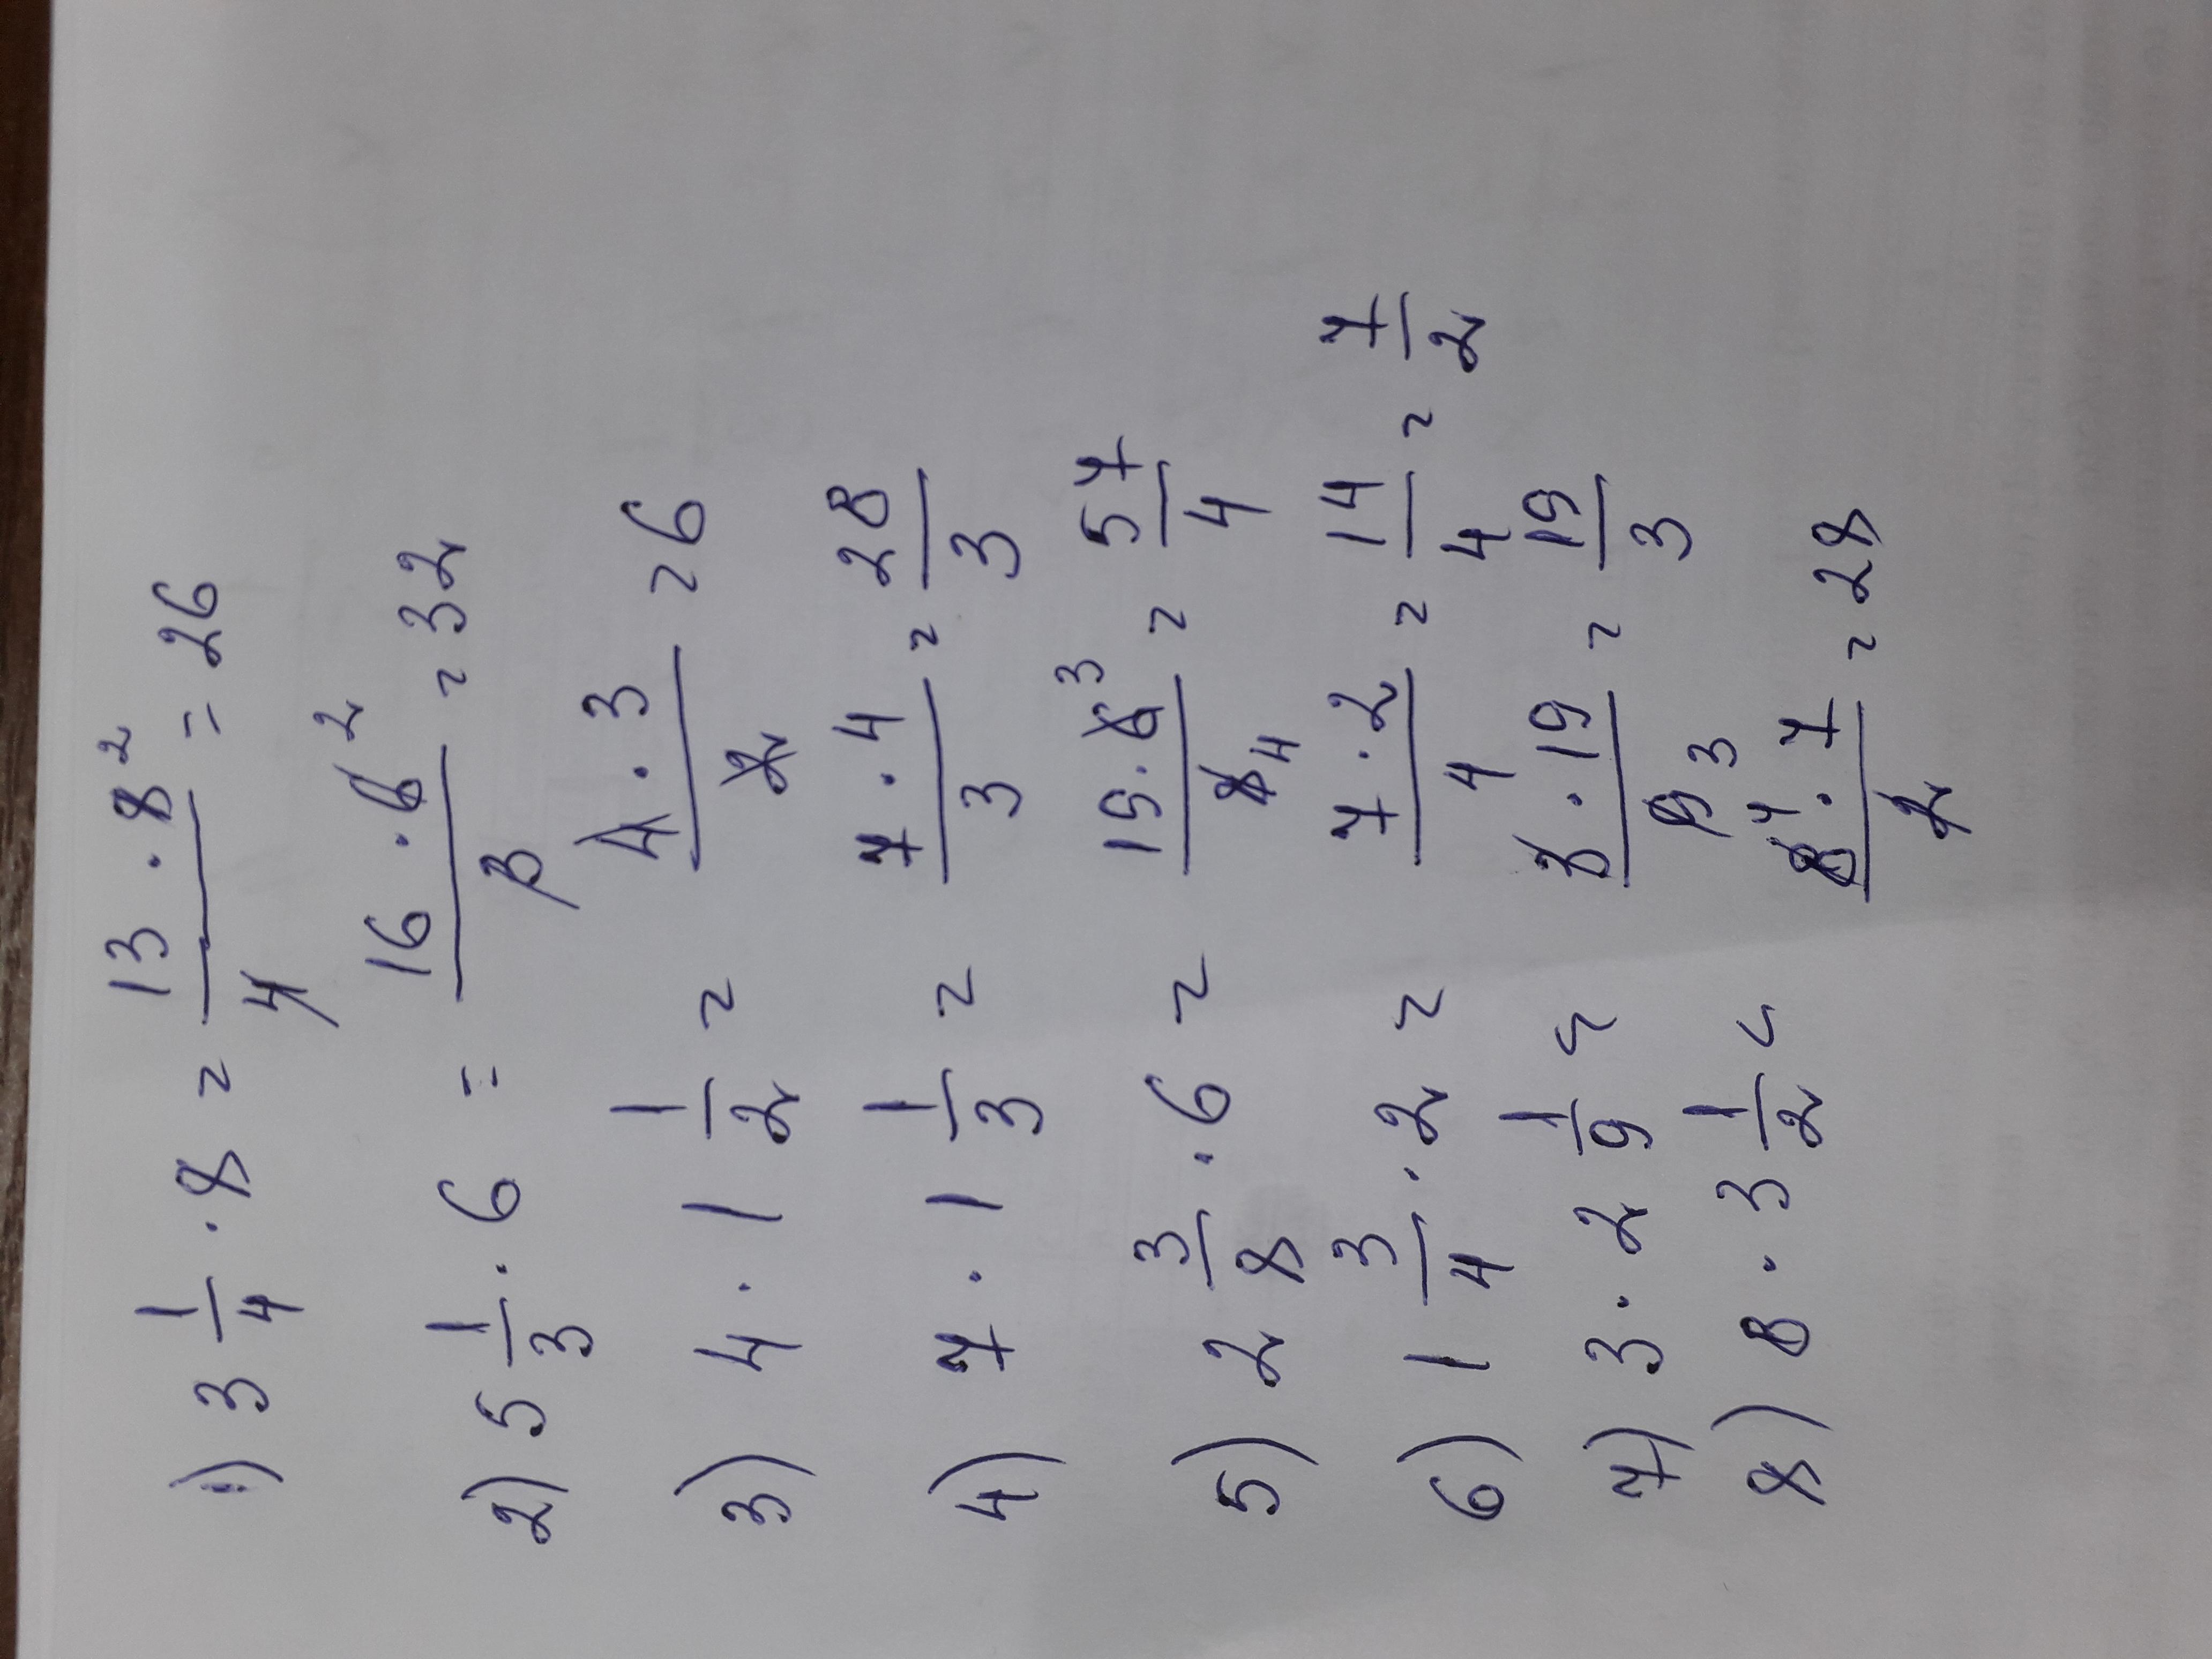 1) 3 1/4 · 8 = 13 · 8²/4 = 26
2) 5 1/3 · 6 = 16 · 6²/3 = 32
3) 4 · 1 1/2 = 4 · 3/2 = 6
4) 7 · 1 1/3 = 7 · 4/3 = 28/3
5) 2 3/8 · 6 = 19 · 6³/8₄ = 57/4
6) 1 3/4 · 2 = 7 · 2/4 = 14/4 = 7/2
7) 3 · 2 1/9 = 3 · 19/9₃ = 19/3
8) 8 · 3 1/2 = 8⁴ · 7/2 = 28